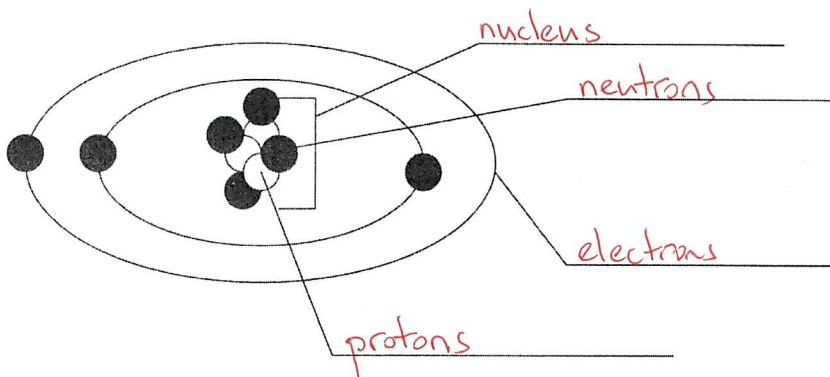 nucleus
neutrons
electrons
protons